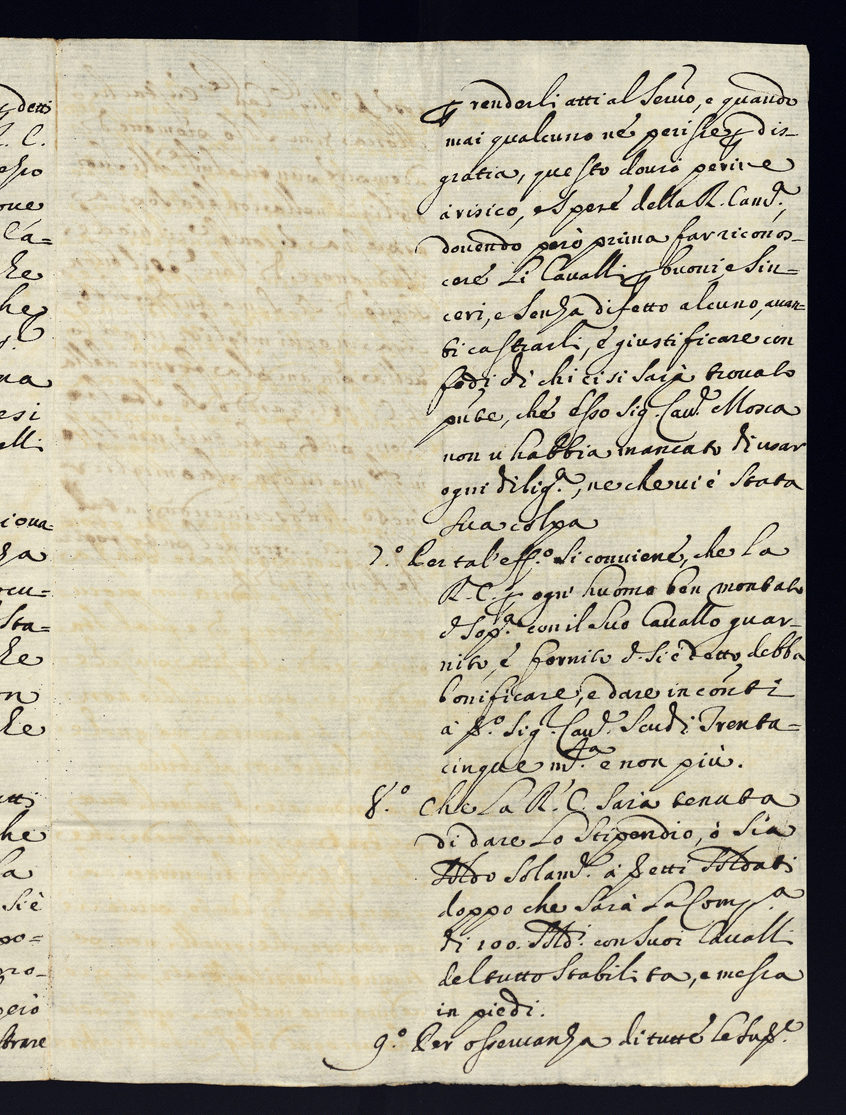 detti
R. C.
esso
oue
Ca=
he
he
na
esi
elli
iona=
za
ocu=
sta=
he
on
he
etti
he
la
si è
po=
pro=
però
strare
ꝑ renderli atti al Seruo, e quando
mai qualcuno ne perisse ꝑ dis-
gratia, questo dourà perire
à risico, e spese della R. Cam.ª,
douendo però prima far riconos-
cere Li Caualli ꝑ buoni e sin=
ceri, e senza difetto alcuno, auan=
ti castrarli, e giustificare con
fedi di chi ci si sarà trouato
pnte, che esso Sig. Cau.r Mosca
non u habbia mancato di usar
ogni dilig.ª, ne che ui è stata
sua colpa
7.º Per tal' eff.º si conuiene, che La
R. C. ꝑ ogn' huomo ben montato
d. sop.ª con il suo Cauallo guar-
nito, e fornito d. si è detto, debba
bonificare, e dare in conti
à d.º Sig.r Cau.r Scudi Trenta=
cinque m.ta e non più.
8.º Che La R. C. sarà tenuta
di dare Lo stipendio, ò sia
soldo solam.e à detti soldati
doppo che sarà La Comp.ª
di 100. sold.i con suoi Caualli
del tutto stabilita, e messa
in piedi.
9.º Per osseruanza di tutte le sud.e